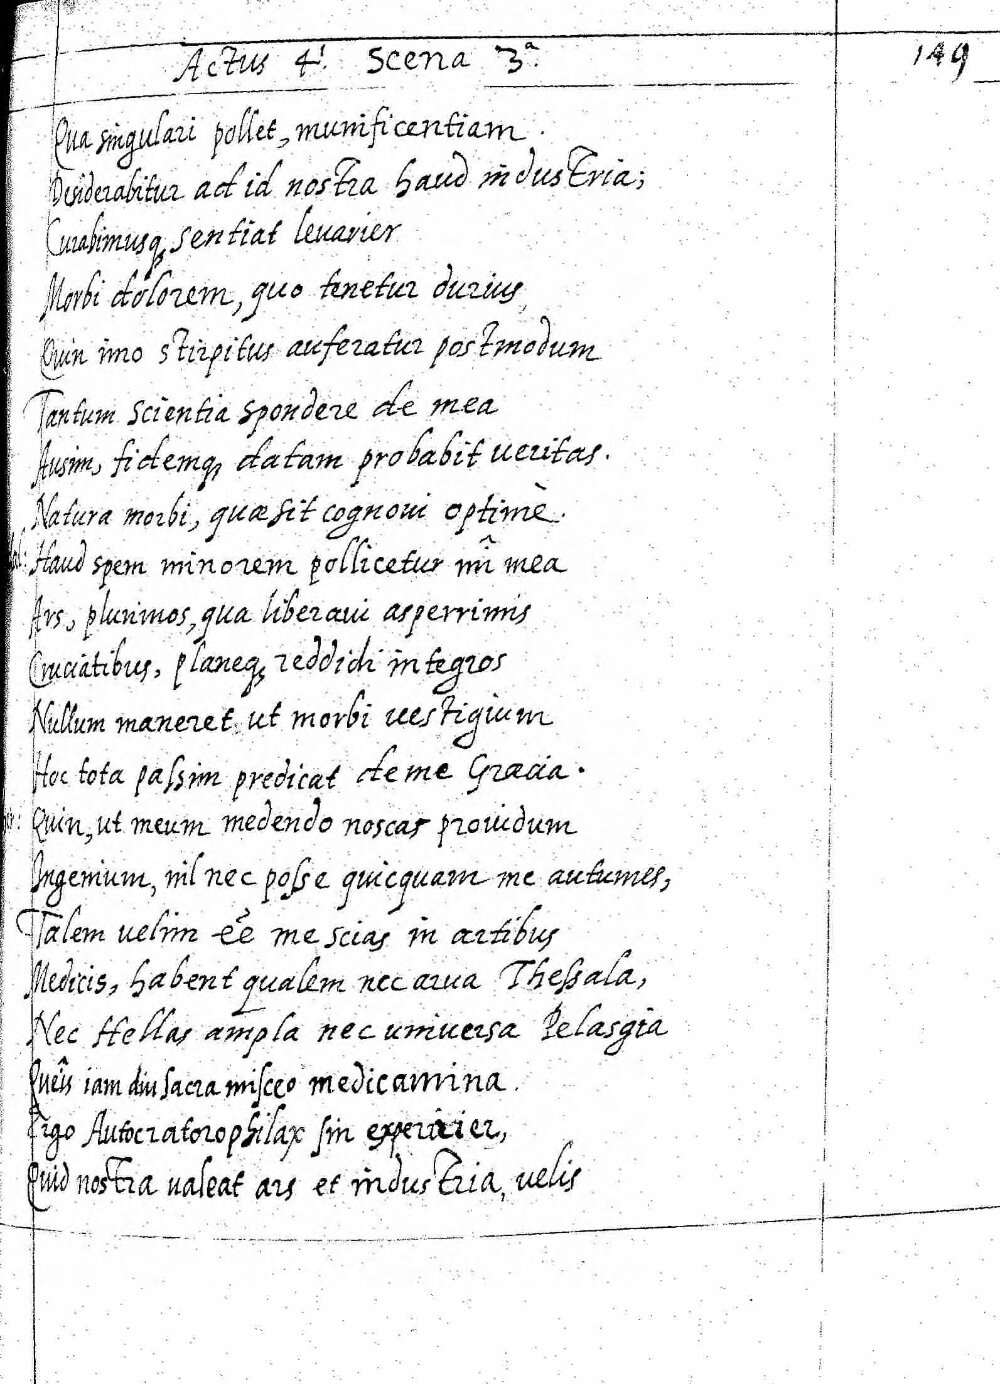 Actus 4.ⁱ Scena 3.ª 149
Qua singulari pollet, munificentiam.
Desiderabitur ad id nostra haud industria;
Curabimusq, sentiat leuarier
Morbi dolorem, quo tenetur durius,
Quin imo stirpitus auferatur postmodum
Tantum scientia spondere de mea
Ausim, fidemq, datam probabit ueritas.
Natura morbi, quæ sit cognoui optimè.
Haud spem minorem pollicetur mî mea
Ars, plurimos, qua liberaui asperrimis
Cruciatibus, planeq, reddidi integros
Nullum maneret ut morbi uestigium
Hoc tota paſsim predicat de me Græcia.
Quin, ut meum medendo noscas prouidum
Ingenium, nil nec poſse quicquam me autumes,
Talem uelim eẽ me scias in artibus
Medicis, habent qualem nec arua Theſsala,
Nec Hellas ampla nec uniuersa Pelasgia
Queîs iam diu sacra miſceo medicamina.
Ergo Autocratorophilax ſin experirier,
Quid nostra ualeat ars et industria, uelis